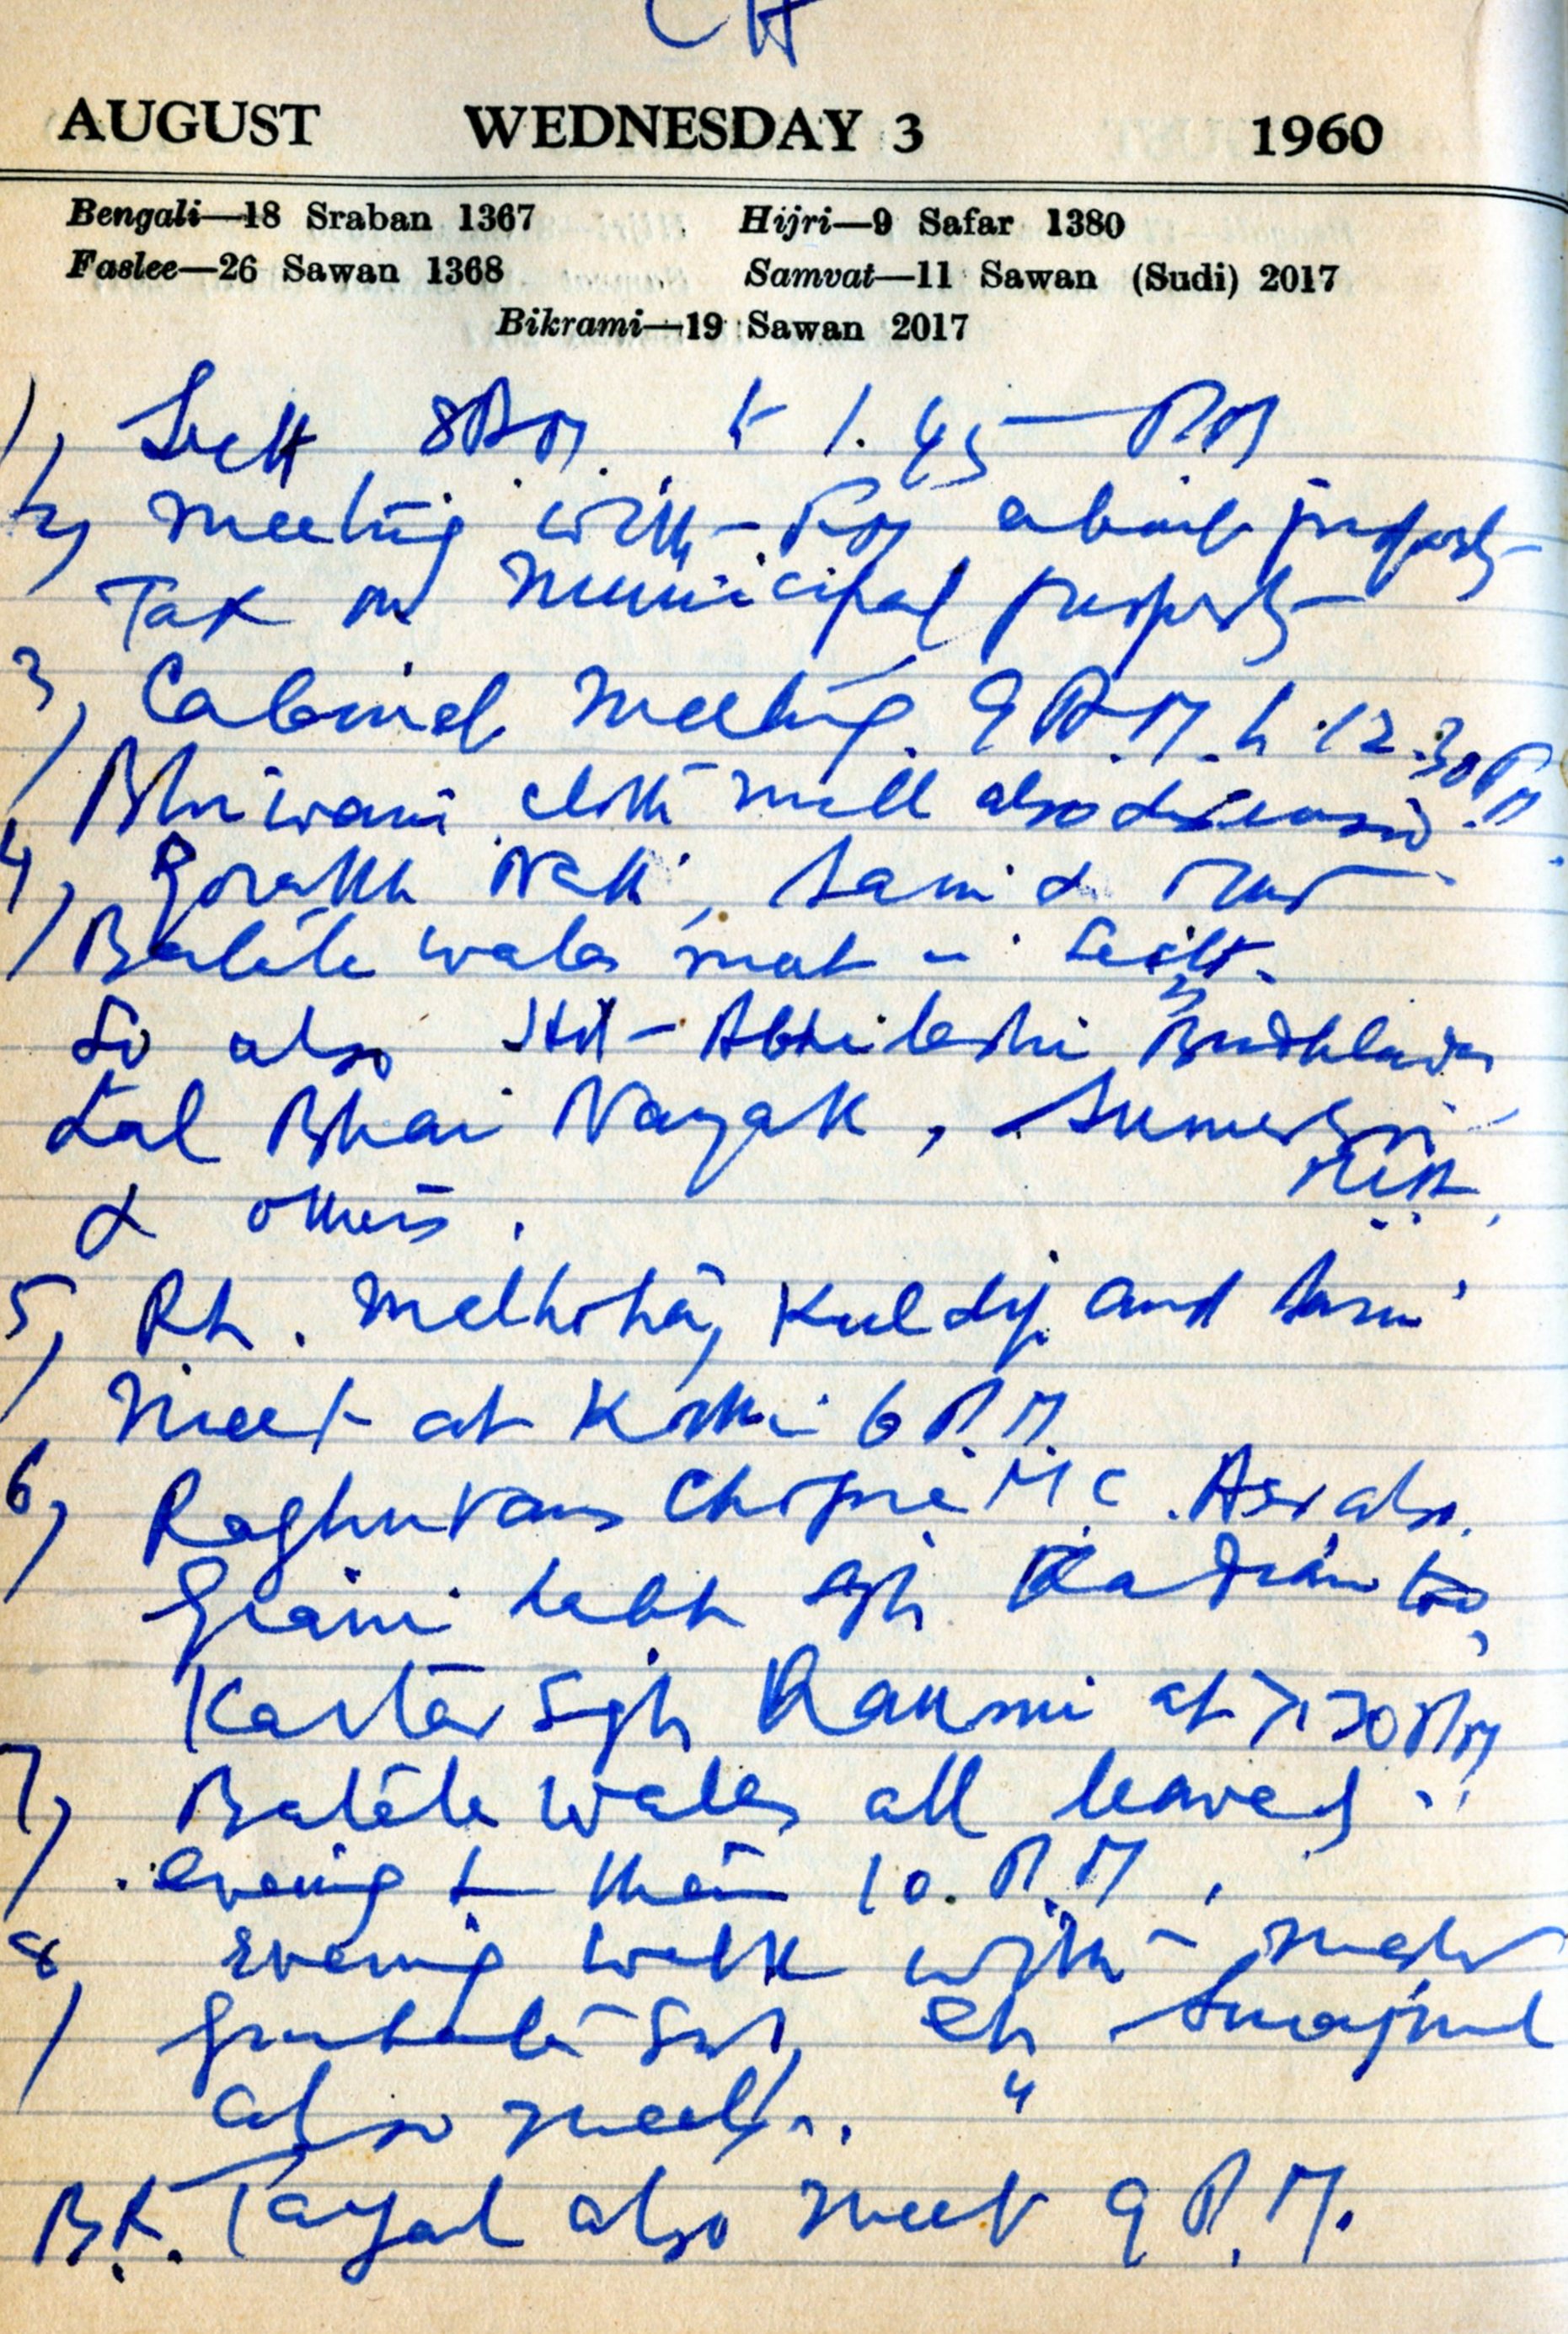 CH
AUGUST WEDNESDAY 3 1960
Bengali—18 Sraban 1367 Hijri—9 Safar 1380
Faslee—26 Sawan 1368 Samvat—11 Sawan (Sudi) 2017
Bikrami—19 Sawan 2017
1, Sectt 8 AM to 1.45 PM
2, meeting with about property
Tax on Municipal property
3, Cabinet meeting 9 A.M. to 12.30 PM
Bhiwani cloth mill also discussed.
4, Gorakh Nath, &
Batala walas met in Sectt.
So also Abhilashi
Lal Bhai Nayak,
& others.
5, Malhotra, Kuldip and
meet at Kothi 6 P.M.
6, Raghuvans Chopra M.C. Asr also.
Giani Labh Sgh Kadian too,
Kartar Sgh at 7.30 PM
7, Batala walas all leaved
evening 10. P.M.
8, Evening walk with
Ch Surajmal
also meet
B.K. Tayal also meet 9 P.M.